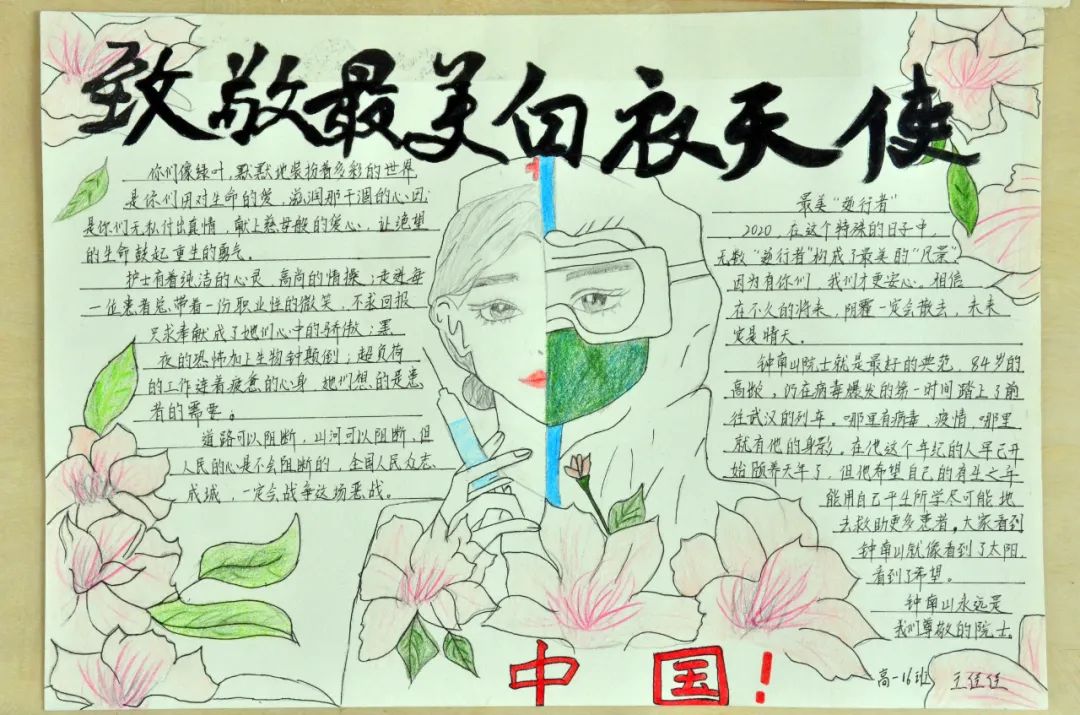 致敬最美白衣天使
你们像绿叶,默默地装扮着多彩的世界
是你们用对生命的爱,滋润那干涸的心田
是你们无私付出真情,献上慈母般的爱心,让绝望
的生命鼓起重生的勇气。
护士有着纯洁的心灵,高尚的情操;走进每
一位患者总带着一份职业性的微笑,不求回报
只求奉献成了她们心中的骄傲;黑
夜的恐怖加上生物钟颠倒;超负荷
的工作连着疲惫的心身,她们想的是患
者的需要。
道路可以阻断,山河可以阻断,但
人民的心是不会阻断的,全国人民众志
成城,一定会战争这场恶战。
最美“逆行者”
2020,在这个特殊的日子中,
无数“逆行者”构成了最美的“风景”,
因为有你们,我们才更安心。相信
在不久的将来,阴霾一定会散去,未来
定是晴天。
钟南山院士就是最好的典范,84岁的
高龄,仍在病毒爆发的第一时间踏上了前
往武汉的列车。哪里有病毒,疫情,哪里
就有他的身影,在他这个年纪的人早已开
始颐养天年了,但他希望自己的有生之年
能用自己平生所学尽可能地
去救助更多患者。大家看到
钟南山就像看到了太阳,
看到了希望。
钟南山永远是
我们尊敬的院士。
中国!
高一16班 王佳佳